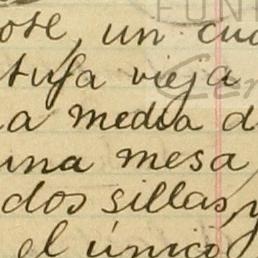 ose, un cua
tufa vieja
a media d
una mesa
dos sillas, y
el único